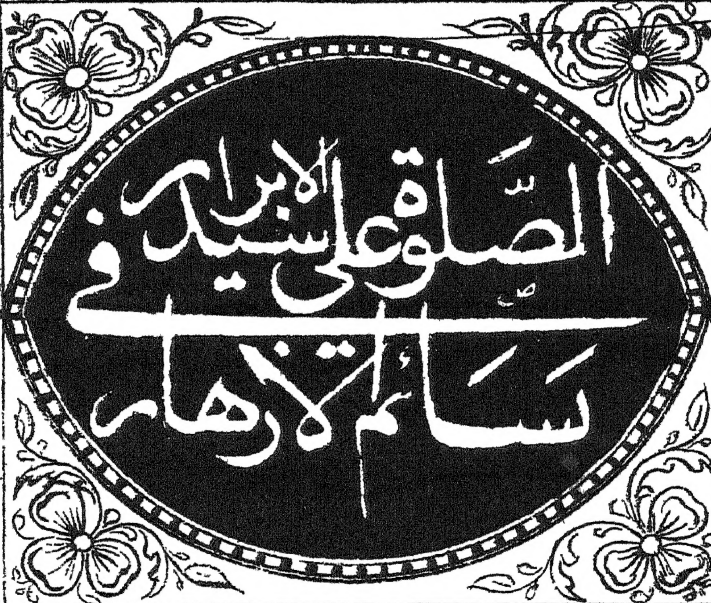 نَسَائم الازهار
في
الصَّلوة على سيد الابرار ص